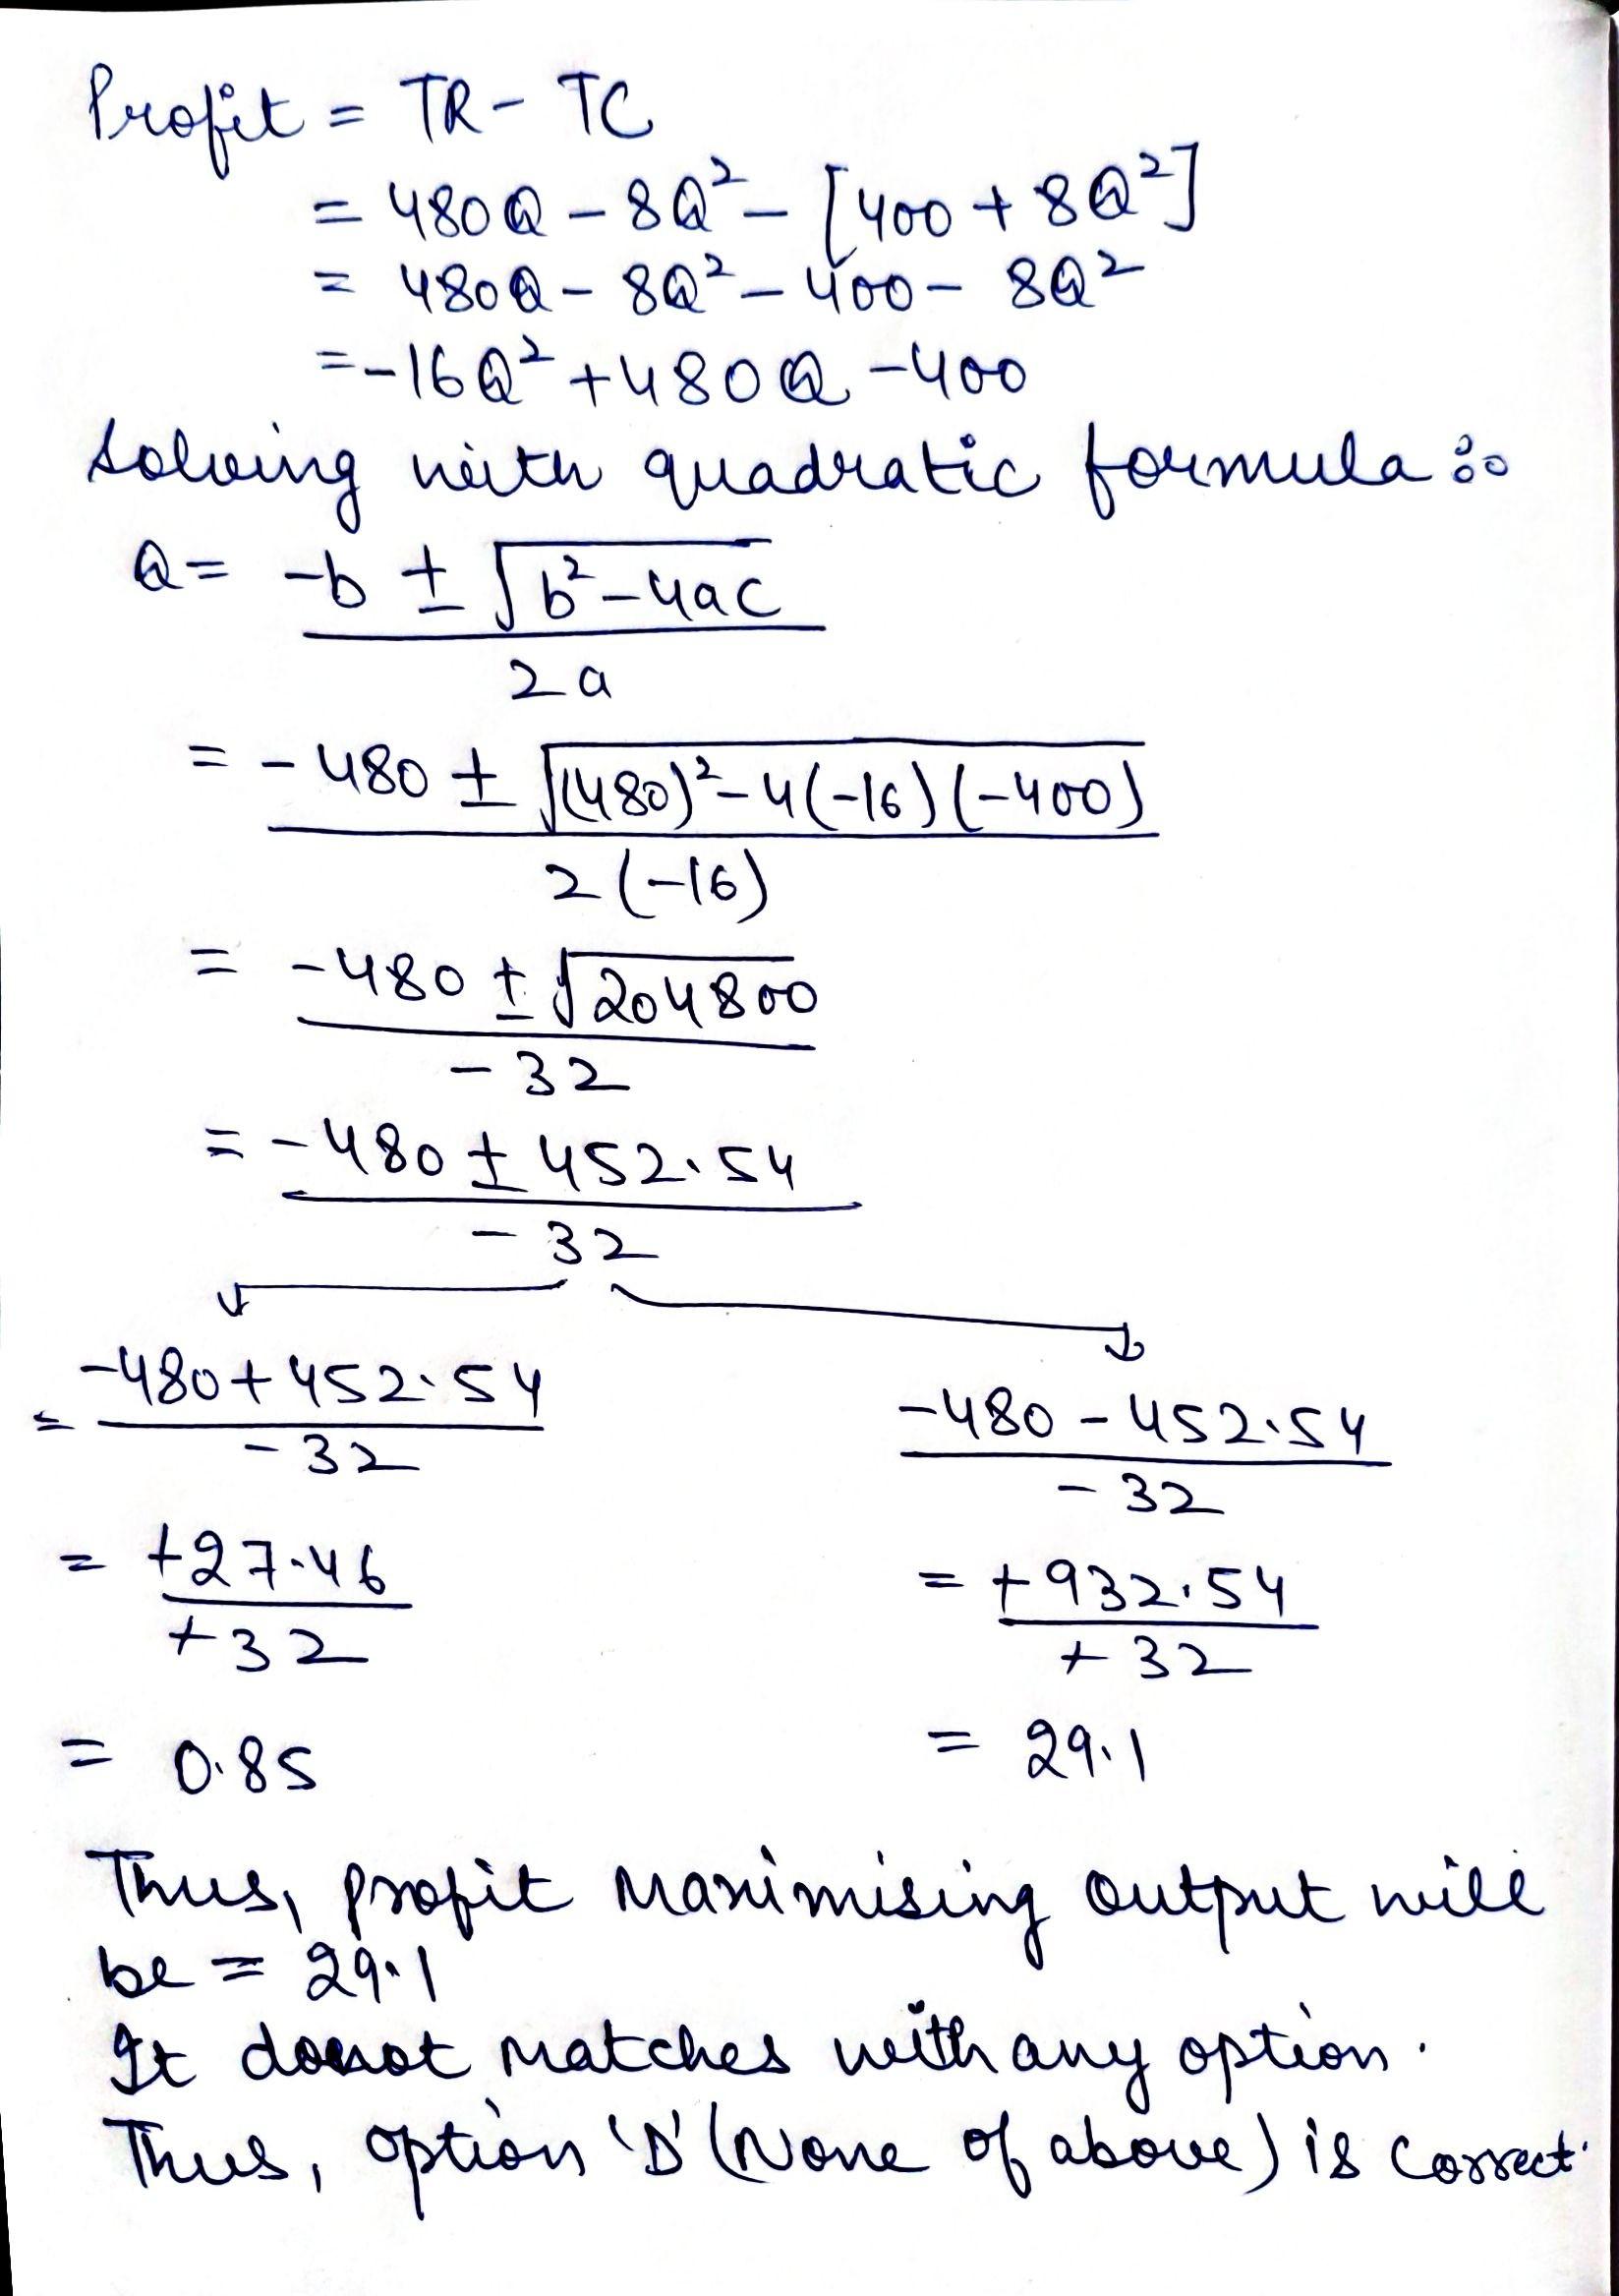 Profit = TR - TC
= 480Q - 8Q² - [400 + 8Q²]
= 480Q - 8Q² - 400 - 8Q²
= -16Q² + 480Q - 400
Solving with quadratic formula :-
Q = -b ± √b² - 4ac
2a
= -480 ± √(480)² - 4(-16)(-400)
2(-16)
= -480 ± √204800
-32
= -480 ± 452.54
-32
= -480 + 452.54
-32
= +27.46
+32
= 0.85
-480 - 452.54
-32
= +932.54
+32
= 29.1
Thus, profit maximising output will
be = 29.1
It donot matches with any option.
Thus, option 'D' (None of above) is correct.